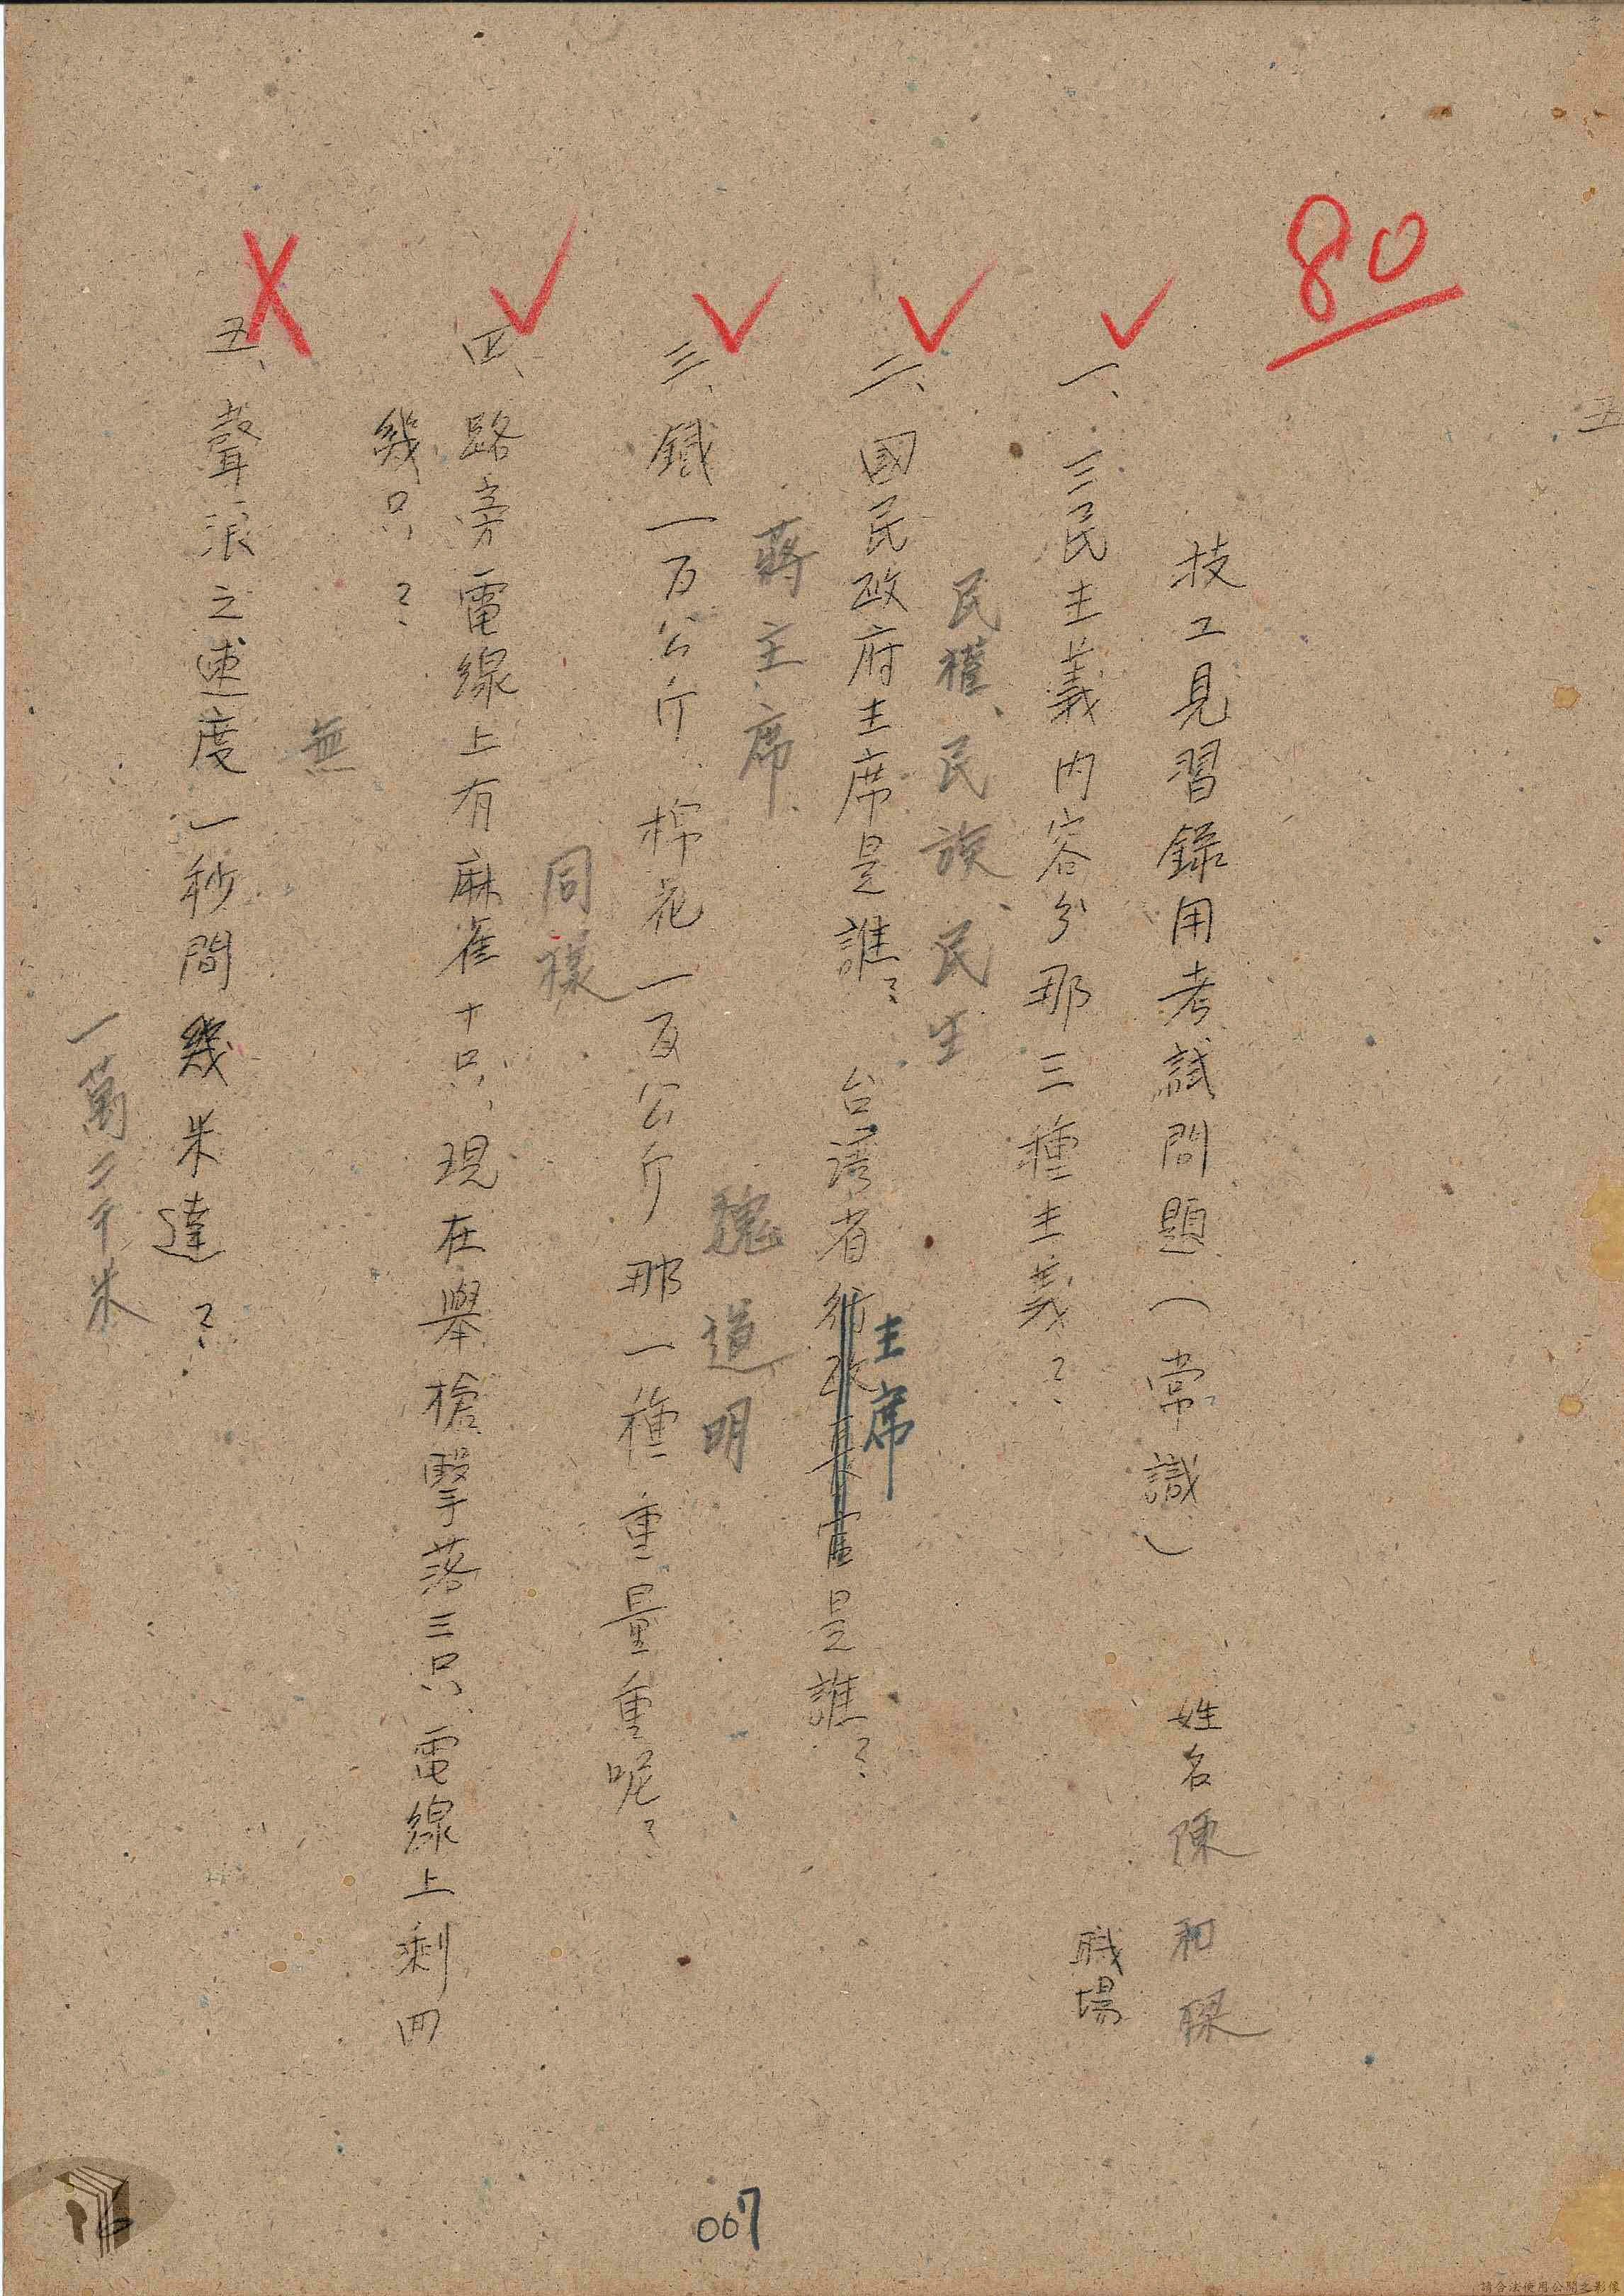 五
80
技工見習錄用考試問題（常識）
姓名陳和
職場
一、三民主義內容分那三種主義？
民權、民族、民生
二、國民政府主席是誰？ 台湾省行政長官是誰？
主席
蔣主席
魏道明
三、鐵一百公斤 棉花一百公斤 那一種重量重呢？
同樣
四、路旁電線上有麻雀十只，現在舉槍擊落三只，電線上剩四
幾只，？
無
五、聲浪之速度一秒間幾米達？
一萬二千米
007
請合法使用公開之影像